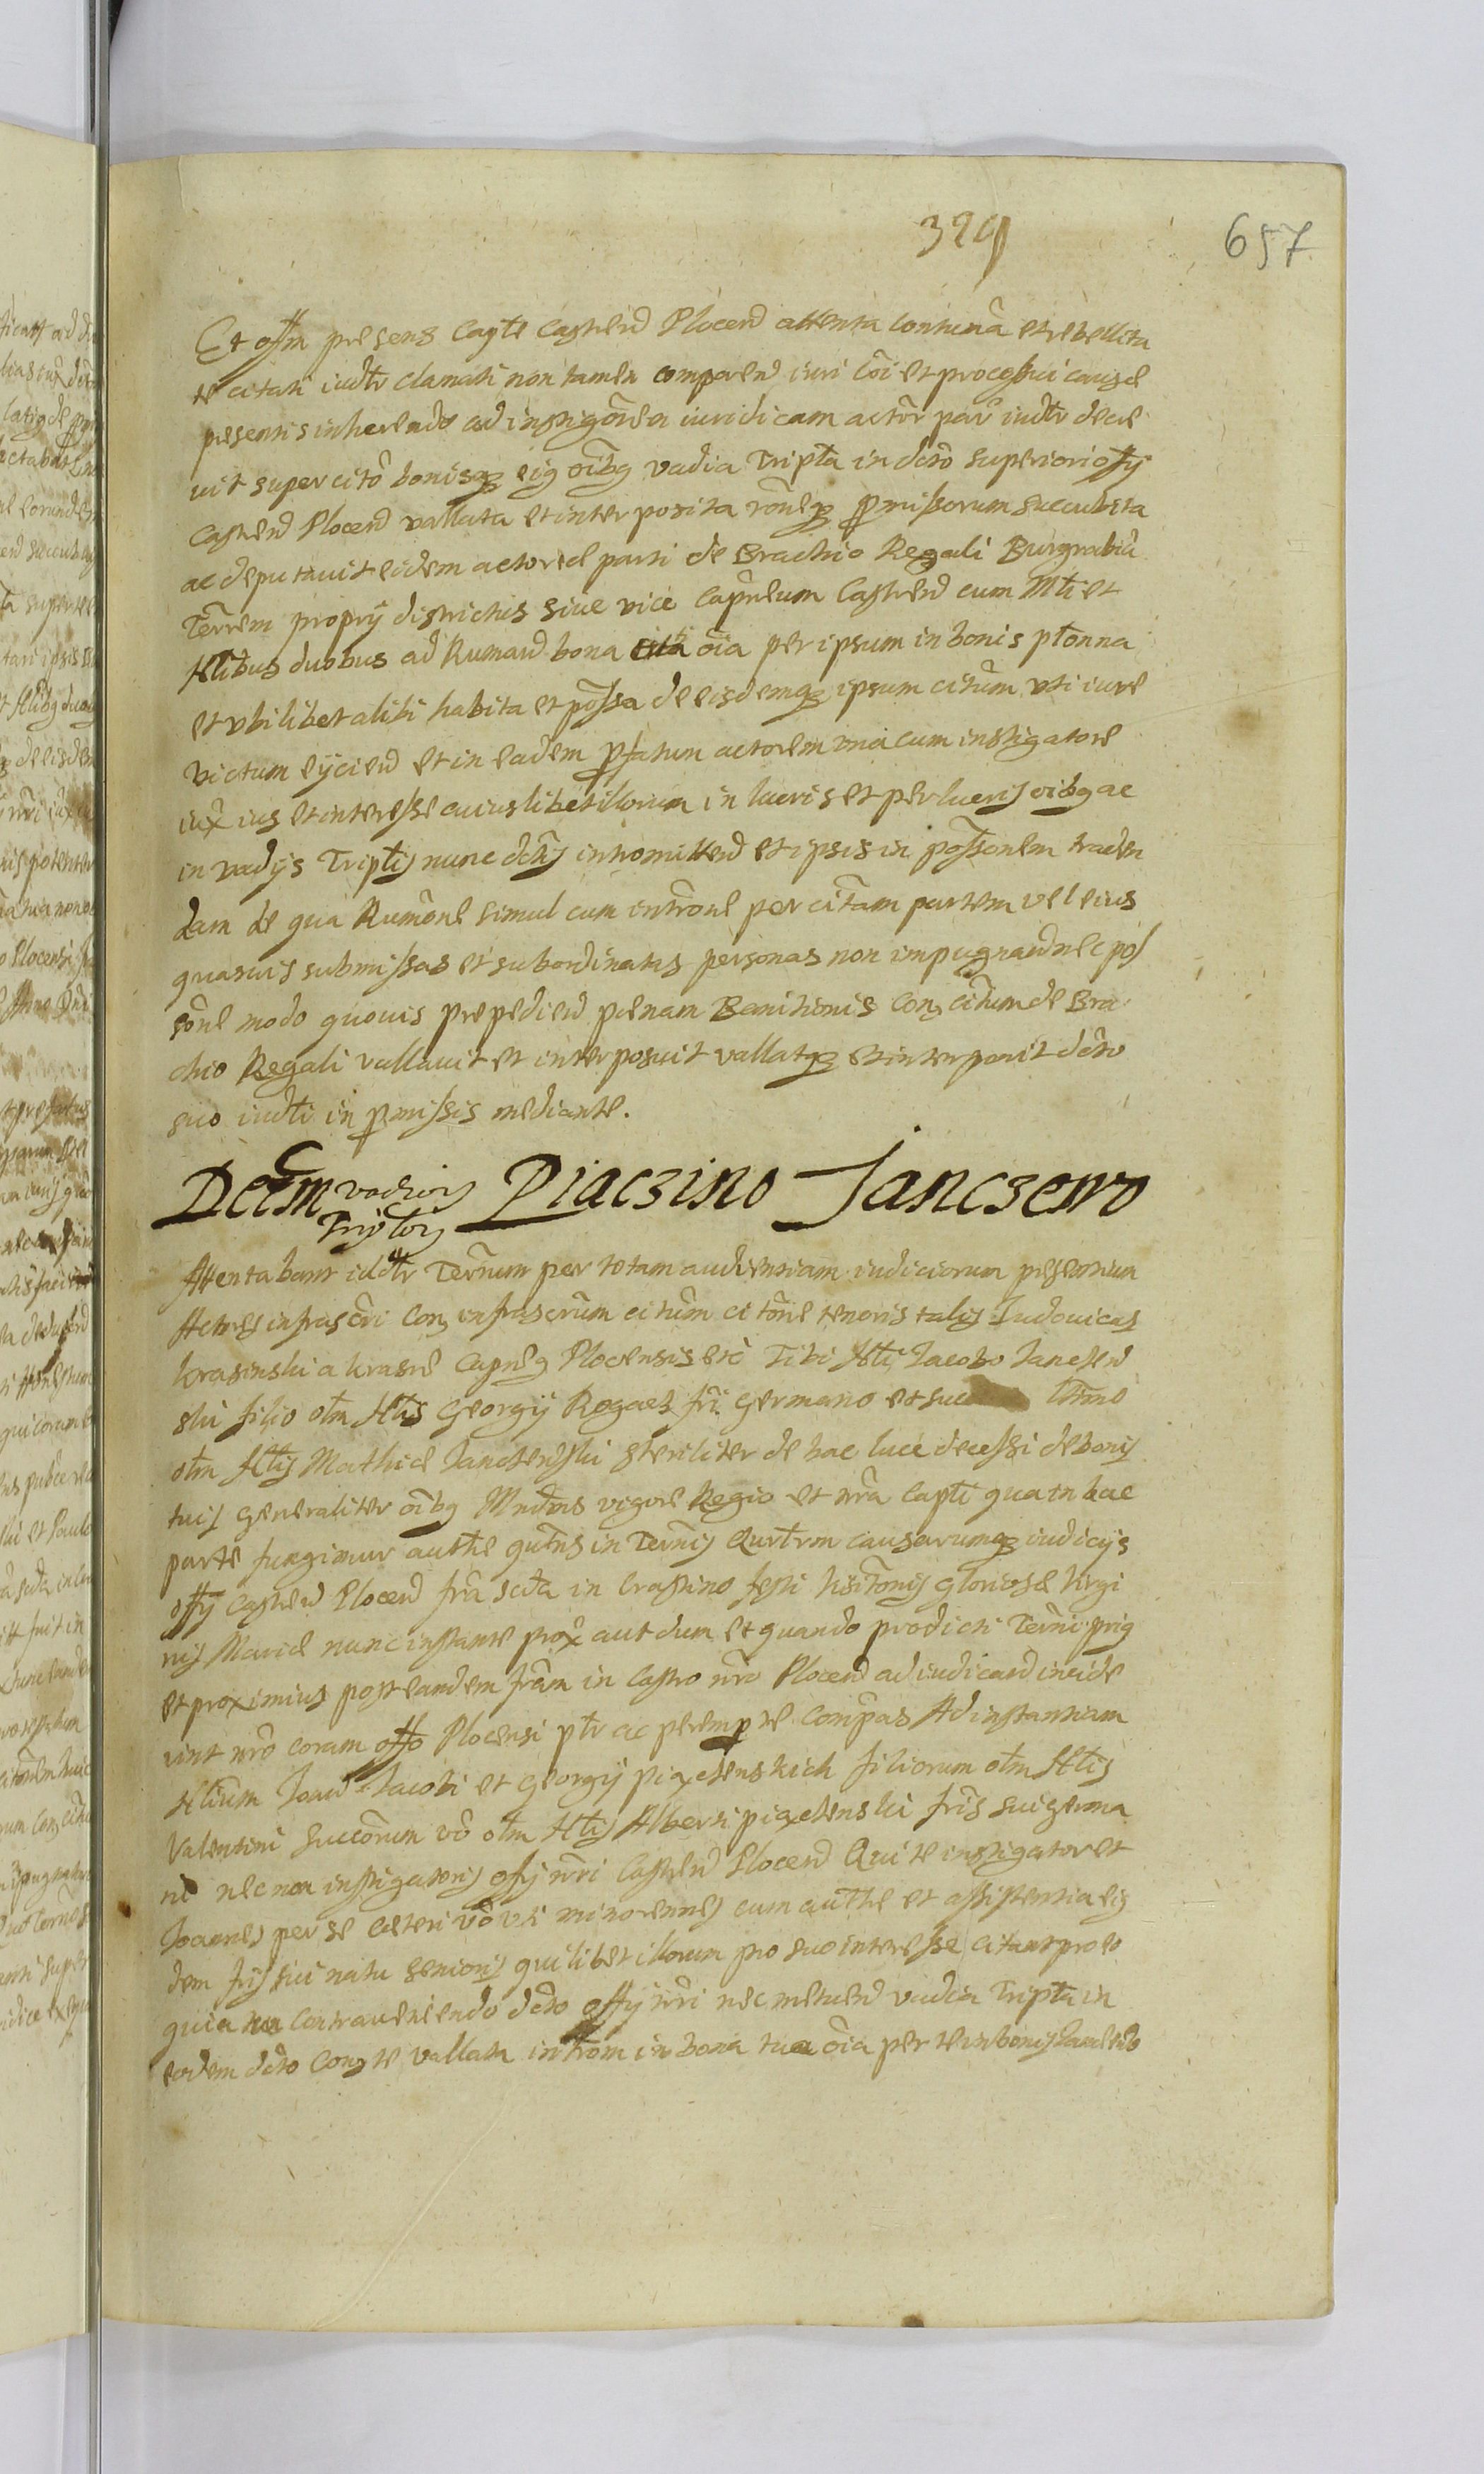 329
657
Et offm presens Capte Castren Plocen attenta contuma et rebellita
te citati iudtr clamati non tamen comparen iuri coi et processui causae
presentis inherendo ad instigonem iuridicam actor par iudtr decre
uit super cito bonisq eig oibg vadia Tripta in dcto superiori offij
Castren Plocen vallata et interposita roneq pmissorum succubita
ac deputauit eidem actoreae parti de Brachio Regali Burgrabiu
Terrem proprij districtus siue vice Capneum Castren cum Mti et
Nlibus duobus ad Rumand bona oia per ipsum in bonis ptonna
et vbilibet alibi habita et possa de eisdemq ipsum citum vti iure
victum eijciend et in eadem pfatum actorem vna cum instigatore
iux ius et interesse cuiuslibet illorum in lucris et perlucris oibg ac
in vadijs Triptis nunc dctis intromittend et ipsis in possonem traden
dam de qua Rumone simul cum introne per citam partem vel eius
quasuis submissas et subordinatas personas non impugnand nec pos
sone modo quouis prepediend penam Banitionis Con citum de Bra
chio Regali vallauit et interposuit vallatq et interponit dcto
suo iudti in pmissis mediante.
Decm vadior Triptor Piaczino Janczewo
Attentabant iudtr Ternum per totam audientiam iudiciorum presentium
Actores infrascri Con infrascrum citum citone tenoris talis Ludouicus
Krasinski a Krasne Capneg Plocensis etc Tibi Nli Jacobo Janczew
ski filio olm Nlis Georgij Rogacz fri germano et suc ltimo
olm Nlis Mathiae Janczewski steriliter de hac luce decessi de bonis
tuis generaliter oibg Mndms vigore Regio et nra Capti qua in hac
parte fungimur autthe qutns in Ternis Qurtrm causarumq iudicijs
offij Castren Plocen fra scda in Crastino festi Visitonis gloriosae Virgi
nis Mariae nunc instante prox aut dum et quando prodicti Terni prig
et proximius post eandem fram in Castro nro Plocen ad iudicand incide
rint nro coram offo Plocensi ptr ac perempte compas Ad instantiam
Nlium Joan Jacobi et Georgij Piączenskich filiorum olm Nlis
Valentini Succorum vo olm Nlis Alberti Piączenski fris sui germa
ni nec non instigatoris offij nri Castren Plocen Qui te instigator et
Joannes per se ceteri vo vti minorennes cum autthe et assistentia eig
dem fris sui natu senioris quilibet illorum pro suo interesse citant pro eo
quia contraueniendo dcto offij nri nec metuend vadia Tripta in
eodem dcto Con te vallata introm in bona tua oia per te in bonis Janczewo